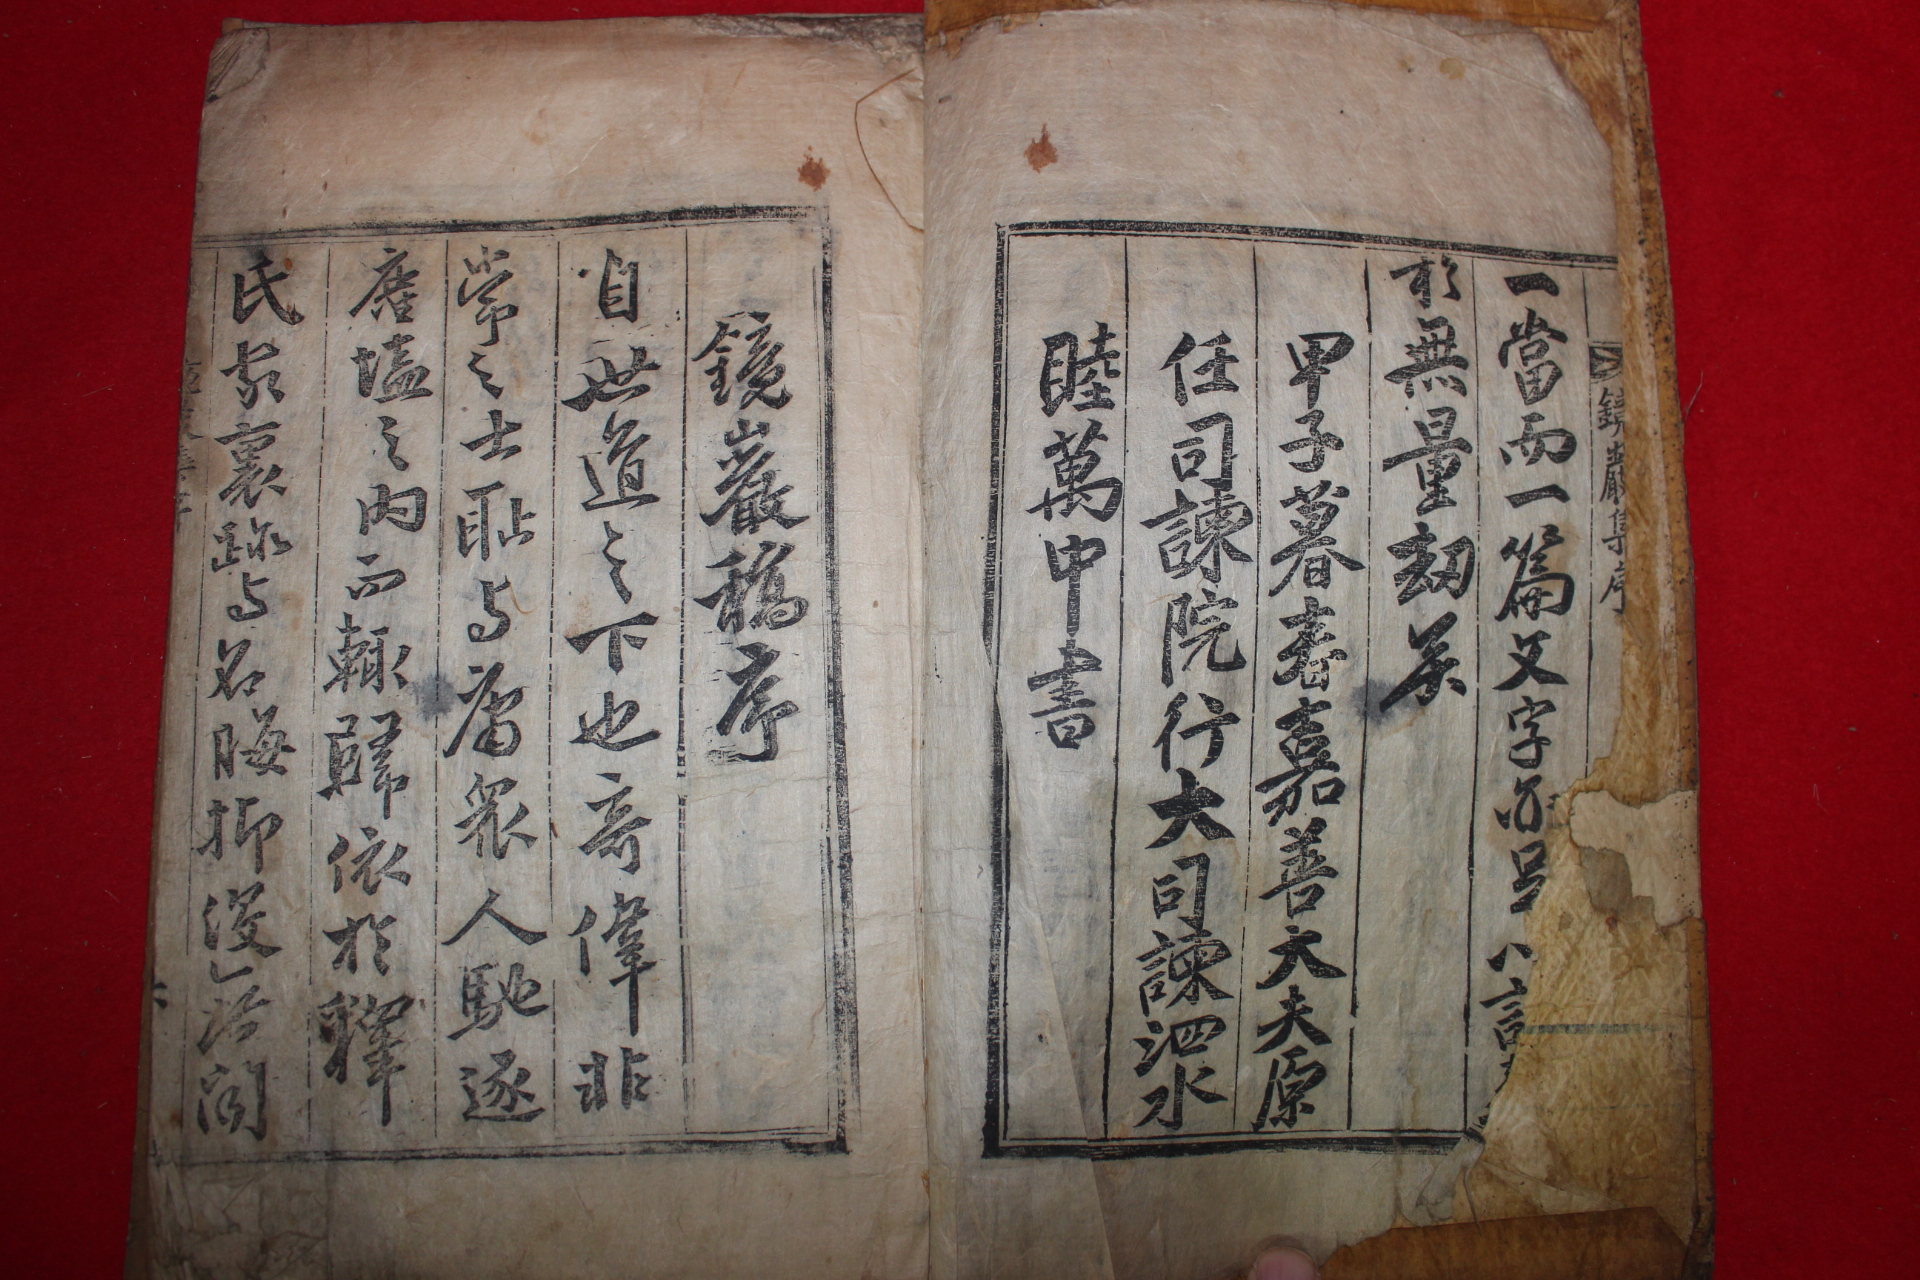 鏡巖集序
一當而一篇文字亦足以言
於無量劫矣
甲子暮春嘉善大夫原
任司諫院行大司諫泗水
睦萬中書
鏡巖稿序
自世道之下也奇偉非
常之士恥与庸衆人馳逐
塵埃之內而輒歸依於釋
氏家裏跡与名晦抑沒人